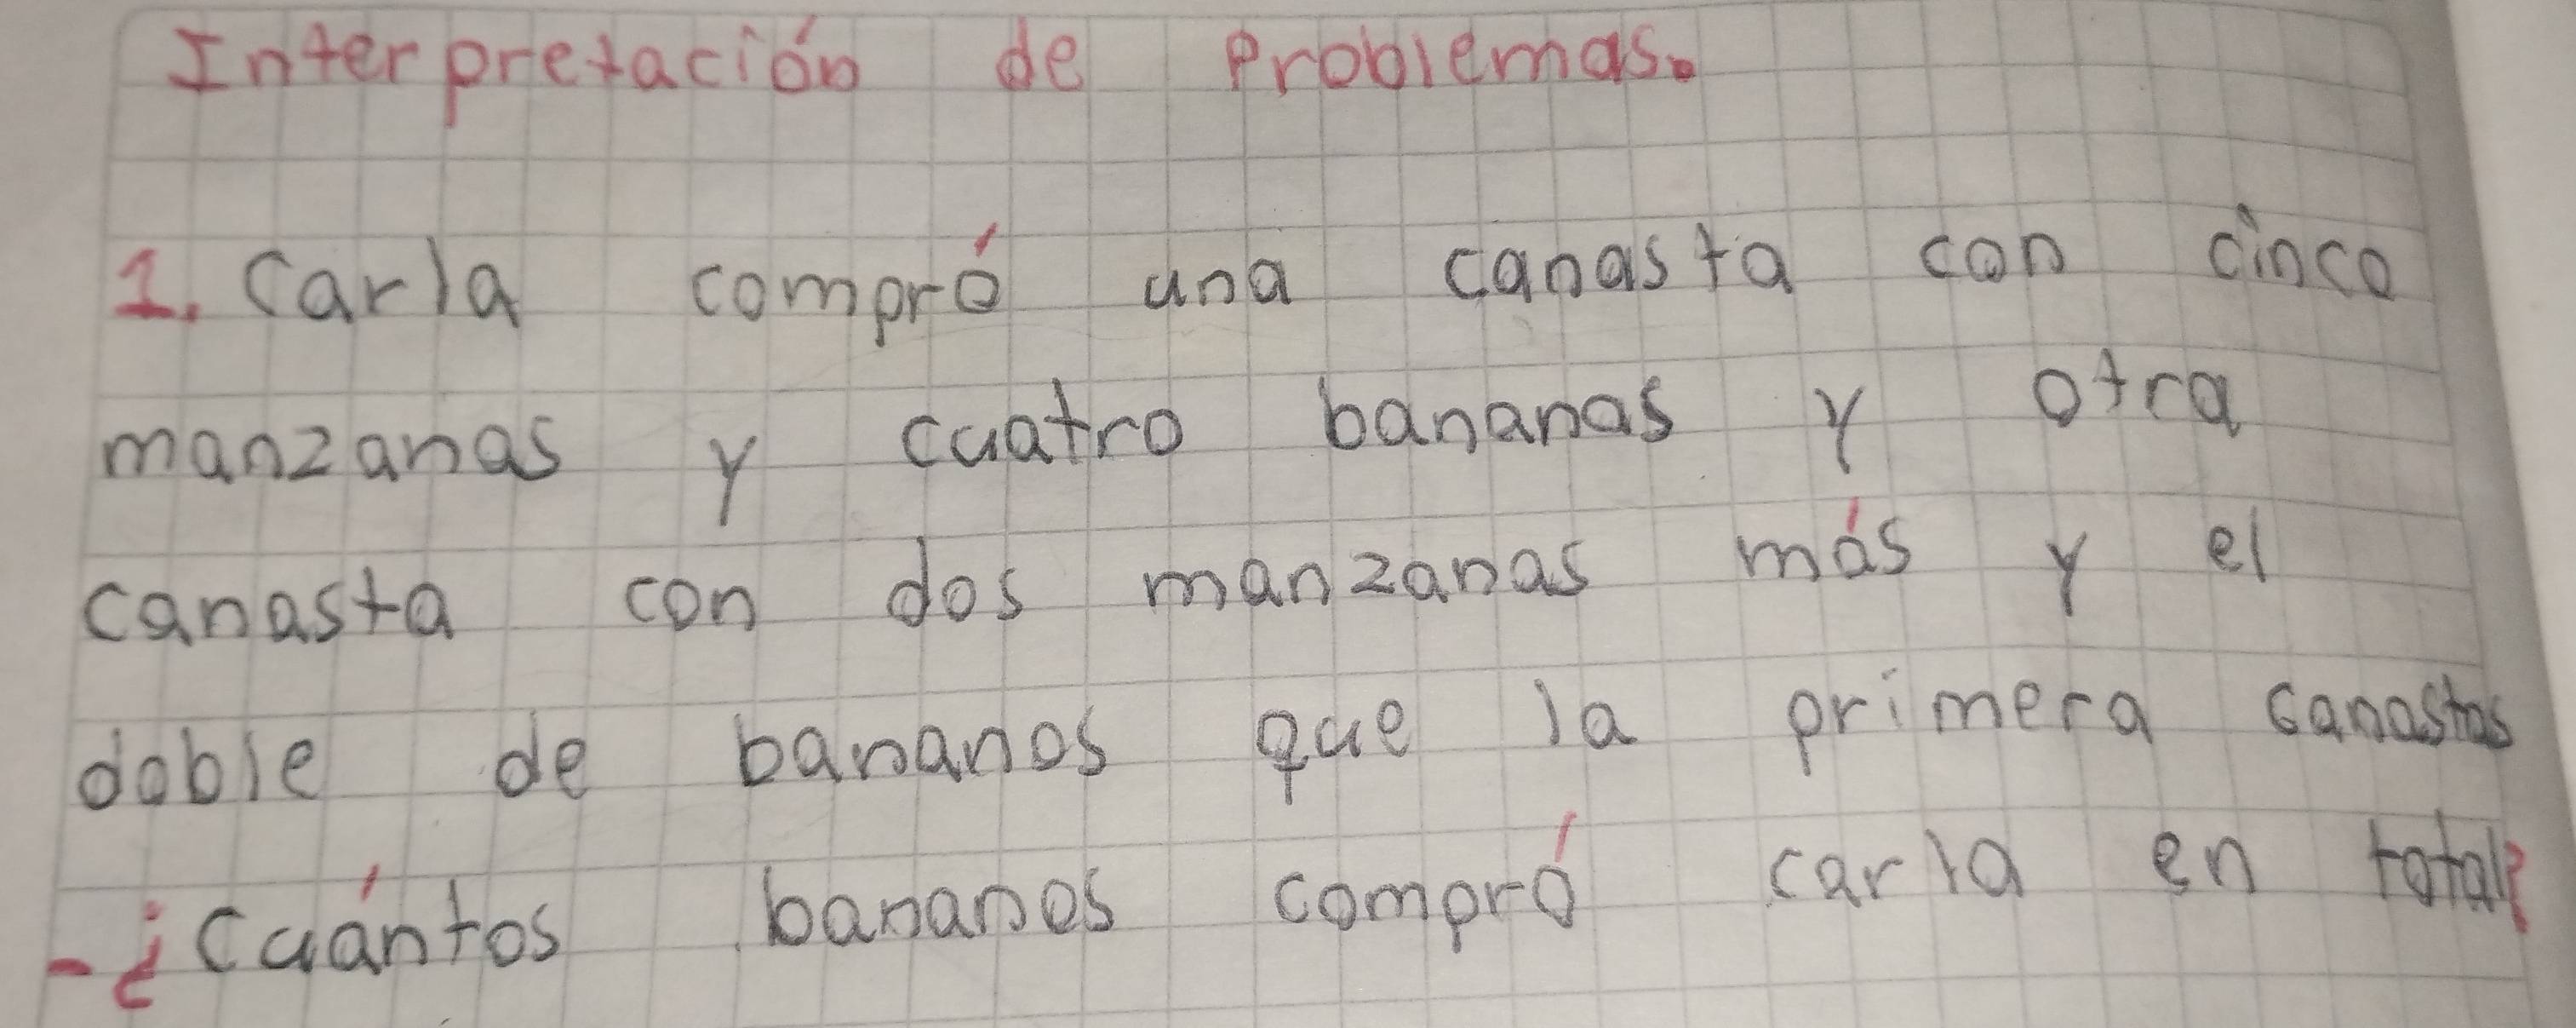 Interpretación de Problemas.
1. Carla compró una canasta con cinco
manzanas y cuatro bananas y otra
canasta con dos manzanas más y el
doble de bananos que la primera canastas
-¿Cuántos bananos compró carla en total?